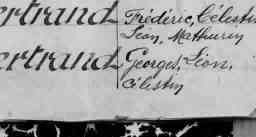 ertrand Frédéric, Célestin
Léon, Mathurin
ertrand Georges, Léon,
Célestin